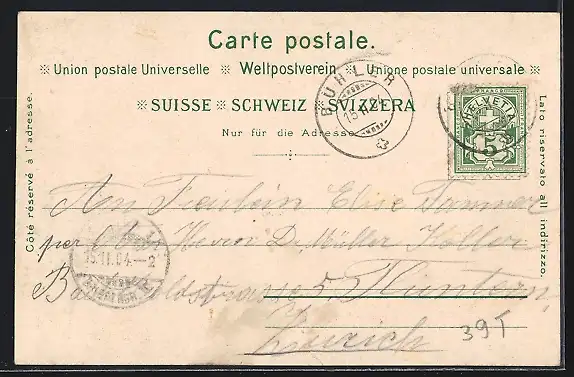 Carte postale.
※ Union postale Universelle ※ Weltpostverein ※ Unione postale universale ※
※ SUISSE ※ SCHWEIZ ※ SVIZZERA
Nur für die Adresse
Côté réservé à l'adresse.
Lato riservato all indirizzo.
BÜHLER
15.II.04
HELVETIA
5
An Fräulein Elise Tanner
per Herrn Dr. Müller Koller
5, Fluntern
Zürich
15.II.04.-2
39T